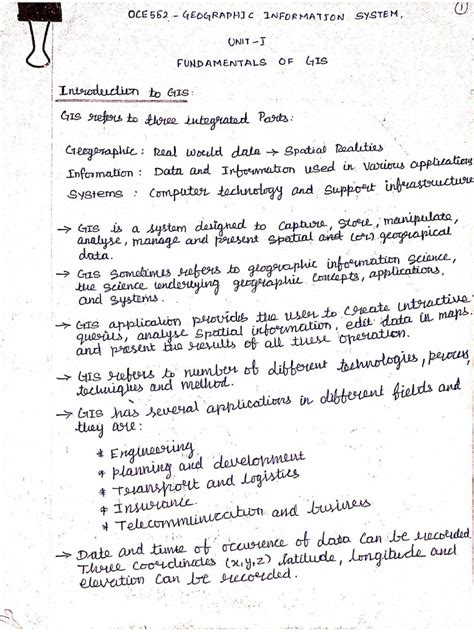 OCE552 - GEOGRAPHIC INFORMATION SYSTEM.
1
UNIT-I
FUNDAMENTALS OF GIS
Introduction to GIS:
GIS refers to three integrated Parts:
Geographic: Real world data → Spatial Realities
Information: Data and Information used in Various applications
Systems: Computer technology and Support infrastructure
→ GIS is a system designed to Capture, Store, manipulate,
analyse, manage and present spatial and (or) geograpical
data.
→ GIS sometimes refers to geographic information science,
the science underlying geographic concepts, applications,
and systems.
→ GIS application provides the user to create intractive
queries, analyse spatial information, edit data in maps.
and present the results of all these operation.
→ GIS refers to number of different technologies,
techniques and method.
→ GIS has several applications in different fields and
they are:
* Engineering
* planning and development
* Transport and logistics
* Insurance.
* Telecommunication and business
→ Date and time of occurence of data can be recorded
Three coordinates (x,y,z), latitude, longitude and
elevation can be recorded.